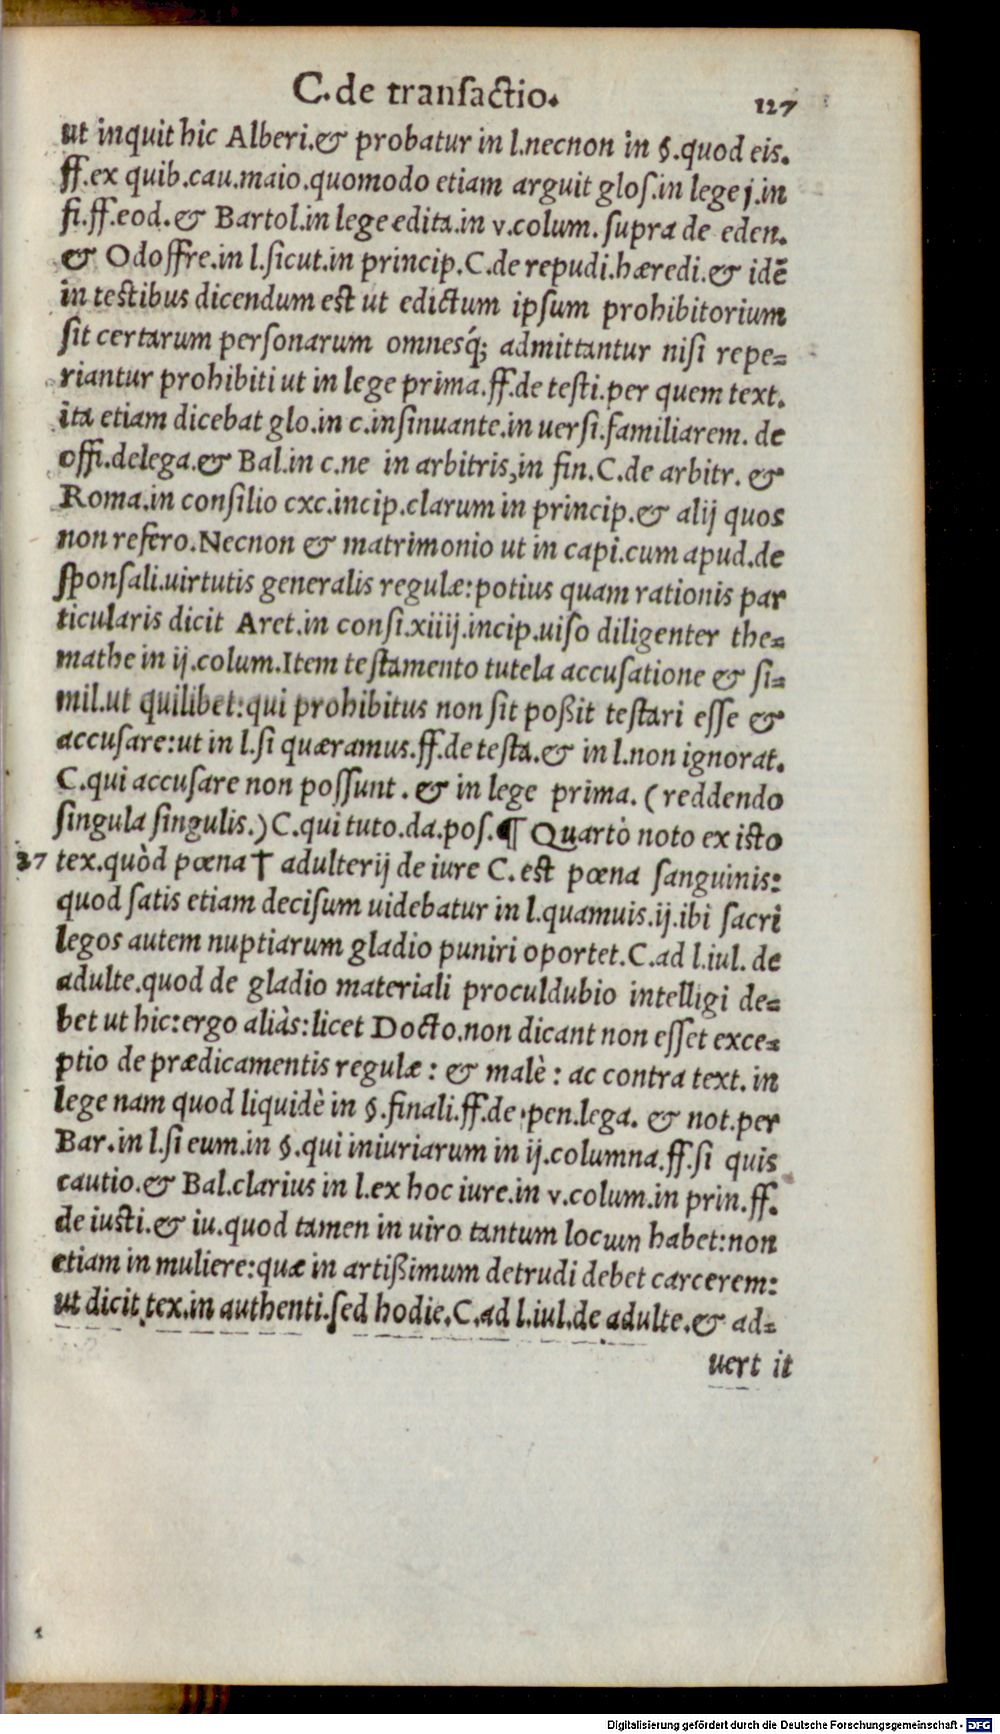 C. de transactio. 127
ut inquit hic Alberi. & probatur in l. necnon in §. quod eis.
ff. ex quib. cau. maio. quomodo etiam arguit glos. in lege j. in
fi. ff. eod. & Bartol. in lege edita. in v. colum. supra de eden.
& Odoffre. in l. sicut. in princip. C. de repudi. hæredi. & idē
in testibus dicendum est ut edictum ipsum prohibitorium
sit certarum personarum omnesq́; admittantur nisi repe=
riantur prohibiti ut in lege prima. ff. de testi. per quem text.
ita etiam dicebat glo. in c. insinuante. in uersi. familiarem. de
offi. delega. & Bal. in c. ne in arbitris, in fin. C. de arbitr. &
Roma. in consilio cxc. incip. clarum in princip. & alij quos
non refero. Necnon & matrimonio ut in capi. cum apud. de
sponsali. uirtutis generalis regulæ: potius quam rationis par
ticularis dicit Aret. in consi. xiiij. incip. uiso diligenter the=
mathe in ij. colum. Item testamento tutela accusatione & si=
mil. ut quilibet: qui prohibitus non sit poßit testari esse &
accusare: ut in l. si quæramus. ff. de testa. & in l. non ignorat.
C. qui accusare non possunt. & in lege prima. (reddendo
singula singulis.) C. qui tuto. da. pos. ¶ Quartò noto ex isto
37 tex. quòd pœna † adulterij de iure C. est pœna sanguinis:
quod satis etiam decisum uidebatur in l. quamuis. ij. ibi sacri
legos autem nuptiarum gladio puniri oportet. C. ad l. iul. de
adulte. quod de gladio materiali proculdubio intelligi de=
bet ut hic: ergo aliàs: licet Docto. non dicant non esset exce=
ptio de prædicamentis regulæ: & malè: ac contra text. in
lege nam quod liquidè in §. finali. ff. de pen. lega. & not. per
Bar. in l. si eum. in §. qui iniuriarum in ij. columna. ff. si quis
cautio. & Bal. clarius in l. ex hoc iure. in v. colum. in prin. ff.
de iusti. & iu. quod tamen in uiro tantum locum habet: non
etiam in muliere: quæ in artißimum detrudi debet carcerem:
ut dicit tex. in authenti. sed hodie. C. ad l. iul. de adulte. & ad=
uert it
Digitalisierung gefördert durch die Deutsche Forschungsgemeinschaft - DFG